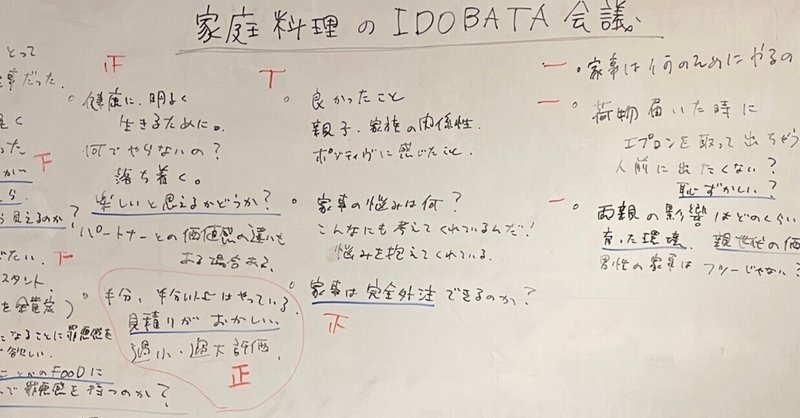 家庭料理のIDOBATA会議
とって
事だった。
正
。健康に、明るく
生きるために。
何でやらないの?
落ち着く。
楽しいと思えるかどうか?
パートナーとの価値感の違いも
ある場合ある。
。半分、半分以上はやっている。
見積りがおかしい
過小・過大評価、
正
見えるのか?
たい。
スタント、
になることに罪悪感を
欲しい。
FOODに
で罪悪感を持つのか?
T
。良かったこと
親子、家族の関係性、
ポジティヴに感じたこと、
。家事の悩みは何?
こんなにも考えてくれているんだ!
悩みを抱えてくれている。
。家事は完全外注できるのか?
一
。家事は何のためにやるの
一
。荷物届いた時に
エプロンを取って出ちゃう
人前に出たくない?
恥ずかしい?
一
。両親の影響はどのくらい
育った環境、親世代の価
男性の家事はフツーじゃない?